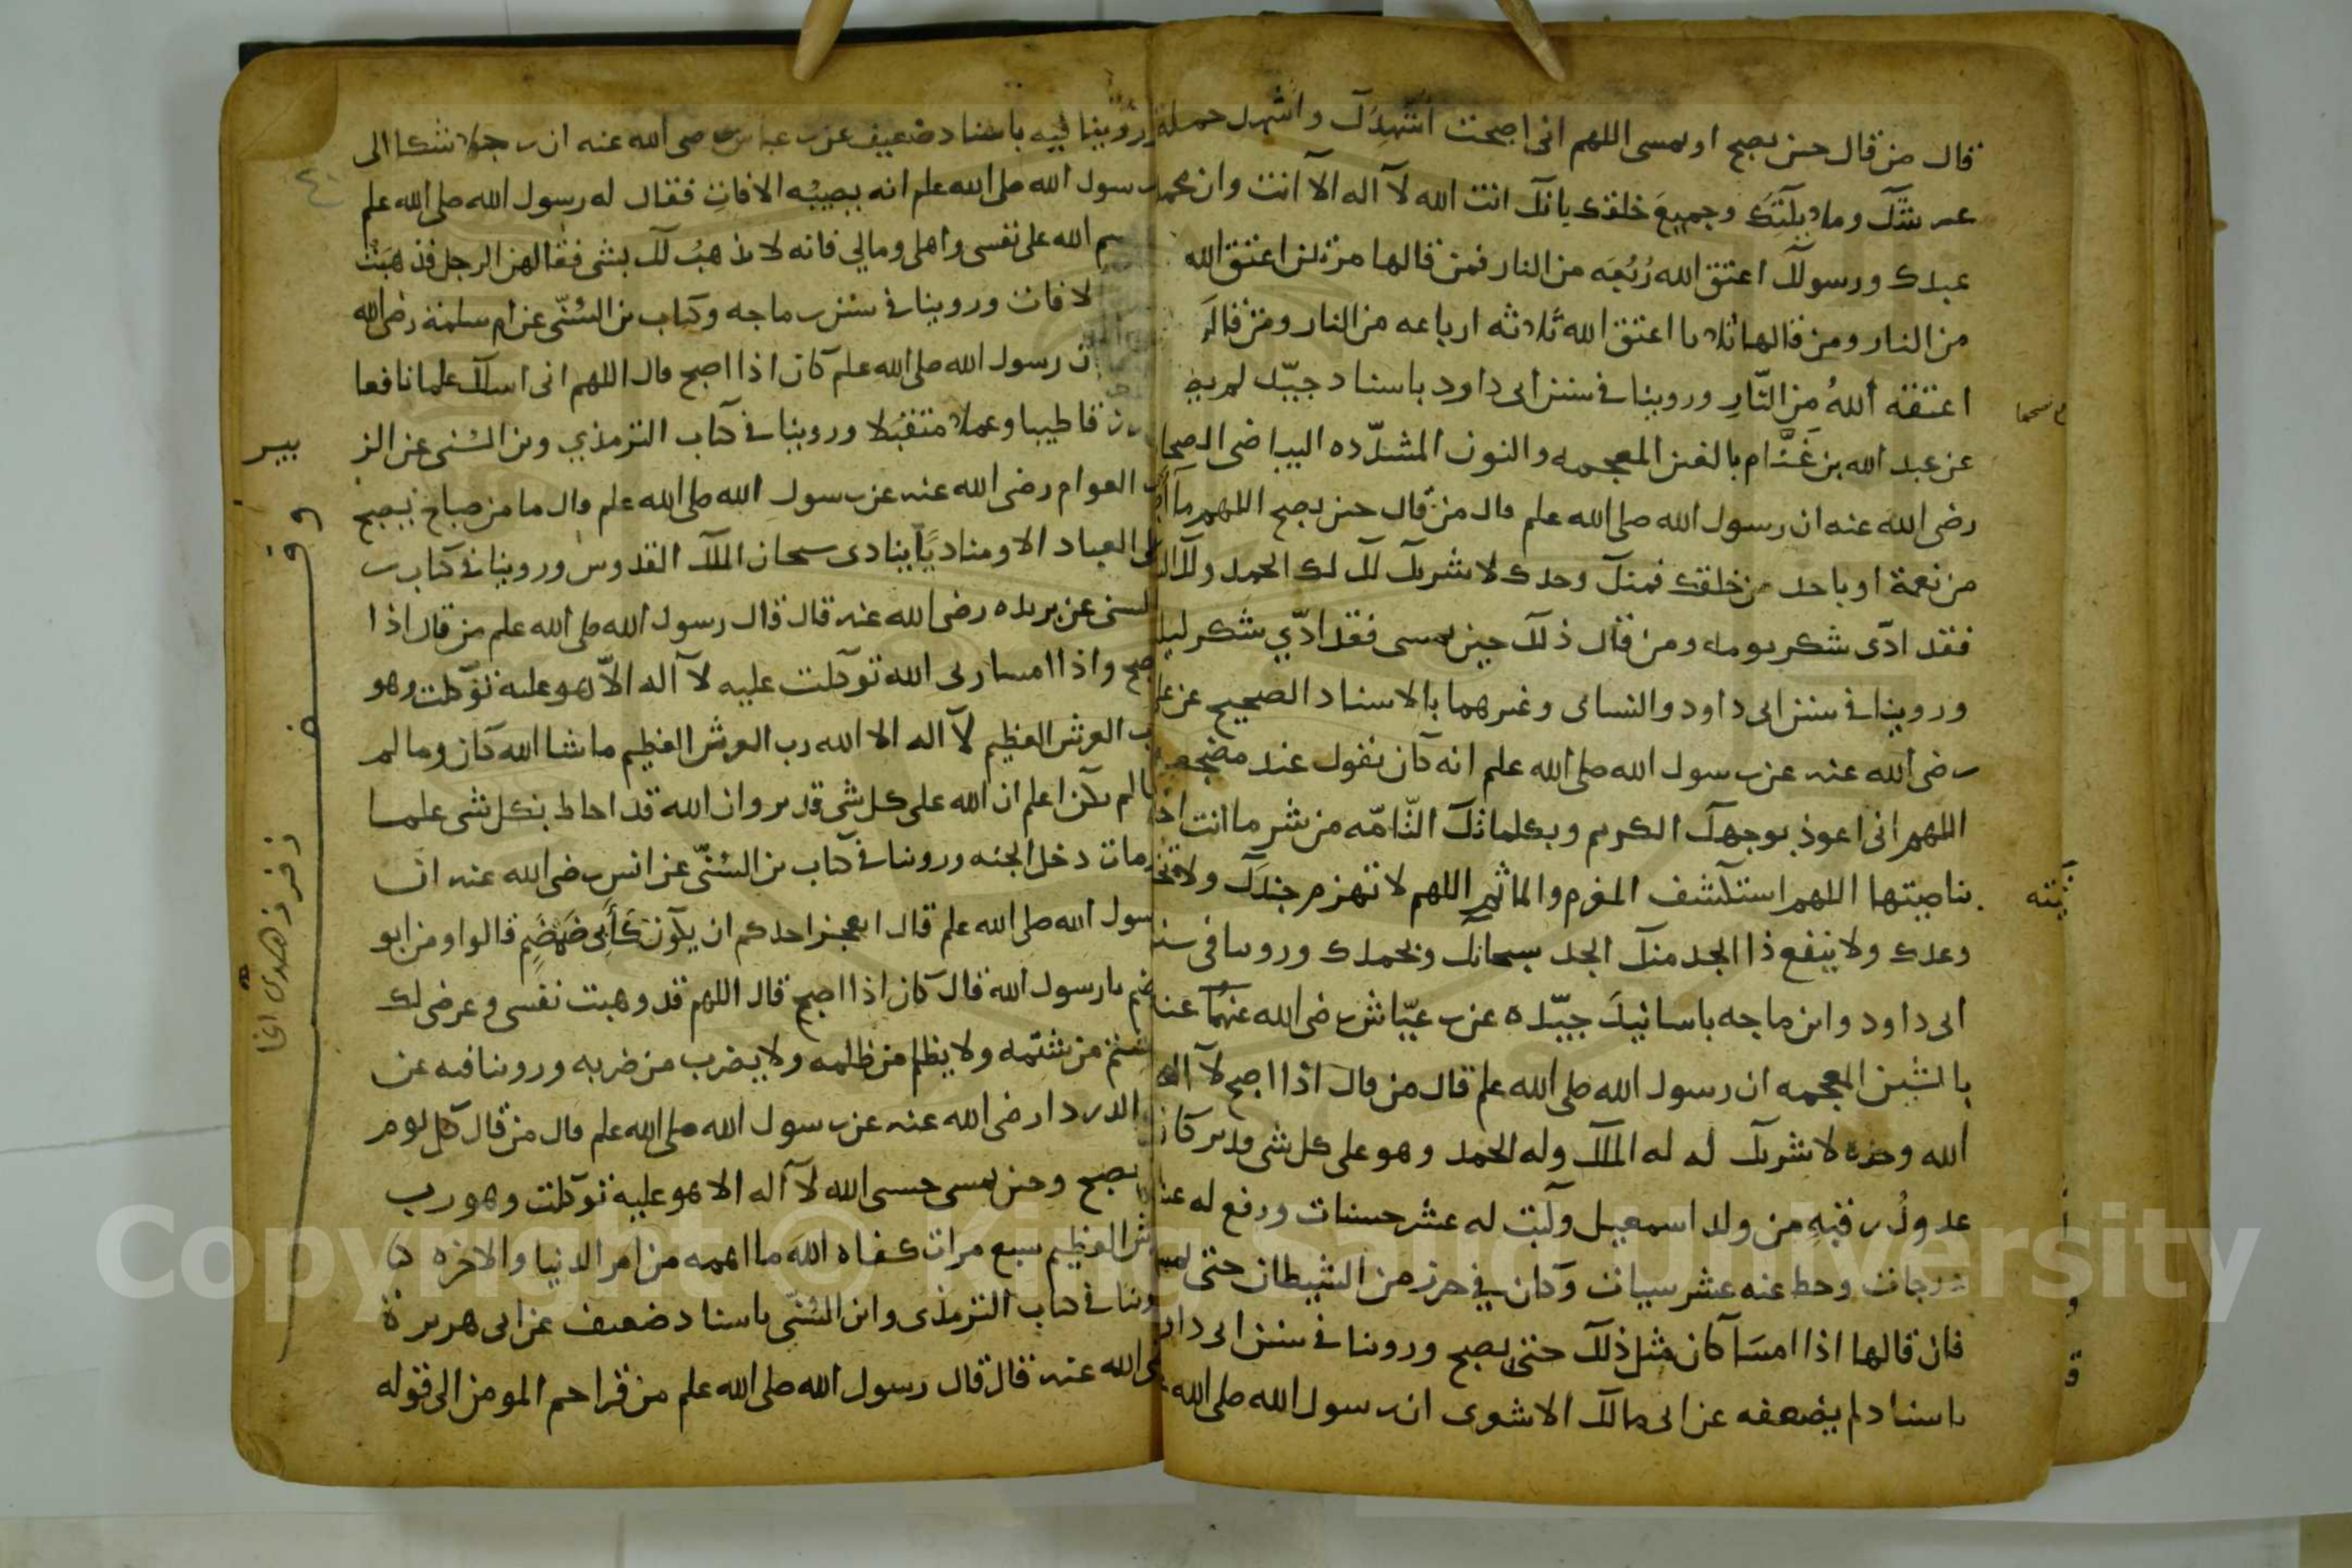 قال من قال حين يصبح او يمسى اللهم انى اصبحت اشهدك واشهد حملة
عرشك وملايكتك وجميع خلقك بانك انت الله لا اله الا انت وان محمدا
عبدك ورسولك اعتق الله ربعه من النار فمن قالها مرتين اعتق الله
من النار ومن قالها ثلاثا اعتق الله ثلاثه ارباعه من النار ومن قالها
اعتقه الله من النار وروينا فى سنن ابى داود باسناد جيد لم يض
عن عبد الله بن غنام بالغين المعجمه والنون المشدده البياضى الصحا
رضى الله عنه ان رسول الله صلى الله علم قال من قال حين يصبح اللهم ما اصبح
من نعمة او باحد من خلقك فمنك وحدك لا شريك لك لك الحمد ولك ال
فقد ادى شكر يومه ومن قال ذلك حين يمسى فقد ادي شكر ليل
وروينا فى سنن ابى داود والنساى وغيرهما بالاسناد الصحيح عن عل
رضى الله عنه عن رسول الله صلى الله علم انه كان يقول عند مضجعه
اللهم انى اعوذ بوجهك الكريم وبكلماتك التامه من شر ما انت اخذ
بناصيتها اللهم انت تكشف المغرم والماثم اللهم لا تهزم جندك ولا تخ
وعدك ولا ينفع ذا الجد منك الجد سبحانك وبحمدك وروينا فى سنن
ابى داود وابن ماجه باسانيد جيده عن عياش رضى الله عنهما عنا
بالشين المعجمه ان رسول الله صلى الله علم قال من قال اذا اصبح لا اله
الله وحده لا شريك له له الملك وله الحمد وهو على كل شى قدير كان
عدول رقبه من ولد اسمعيل وكتب له عشر حسنات ورفع له عشر
درجات وحط عنه عشر سيات وكان في حرز من الشيطان حتى يمس
فان قالها اذا امسا كان مثل ذلك حتى يصبح وروينا فى سنن ابى داو
باسناد لم يضعفه عن ابى مالك الاشعرى ان رسول الله صلى الله
وروينا فيه باسناد ضعيف عن عباس رضى الله عنه ان رجلا شكا الى
رسول الله صلى الله علم انه يصيبه الافات فقال له رسول الله صلى الله علم
سم الله على نفسى واهلى ومالي فانه لا يذهب لك بشى فقالهن الرجل فذهبت
لافات وروينا فى سنن ماجه وكتاب بن السنى عن ام سلمة رضى الله
ان رسول الله صلى الله علم كان اذا اصبح قال اللهم انى اسالك علما نافعا
ورزقا طيبا وعملا متقبلا وروينا فى كتاب الترمذي وبن السنى عن الز
بير
بن العوام رضى الله عنه عن رسول الله صلى الله علم قال ما من صباح يصبح
على العباد الا ومناديا ينادى سبحان الملك القدوس وروينا فى كتاب
السنى عن بريده رضى الله عنه قال قال رسول الله صلى الله علم من قال اذا
اصبح واذا امسا ربى الله توكلت عليه لا اله الا هو عليه توكلت وهو
رب العرش العظيم لا اله الا الله رب العرش العظيم ما شا الله كان وما لم
يشا لم يكن اعلم ان الله على كل شى قدير وان الله قد احاط بكل شى علما
مات دخل الجنه وروينا فى كتاب بن السنى عن انس رضى الله عنه ان
رسول الله صلى الله علم قال ايعجز احدكم ان يكون كابى ضمضم قالوا ومن ابو
ضمضم يا رسول الله قال كان اذا اصبح قال اللهم قد وهبت نفسى وعرضى لك
يشتم من شتمه ولا يظلم من ظلمه ولا يضرب من ضربه وروينا فيه عن
ابى الدردا رضى الله عنه عن رسول الله صلى الله علم قال من قال كل يوم
حين يصبح وحين يمسى حسبى الله لا اله الا هو عليه توكلت وهو رب
العرش العظيم سبع مرات كفاه الله ما اهمه من امر الدنيا والاخره
وروينا فى كتاب الترمذى وابن السنى باسناد ضعيف عن ابى هريرة
رضى الله عنه قال قال رسول الله صلى الله علم من قرا حم المومن الى قوله
وقف
Copyright © King Saud University